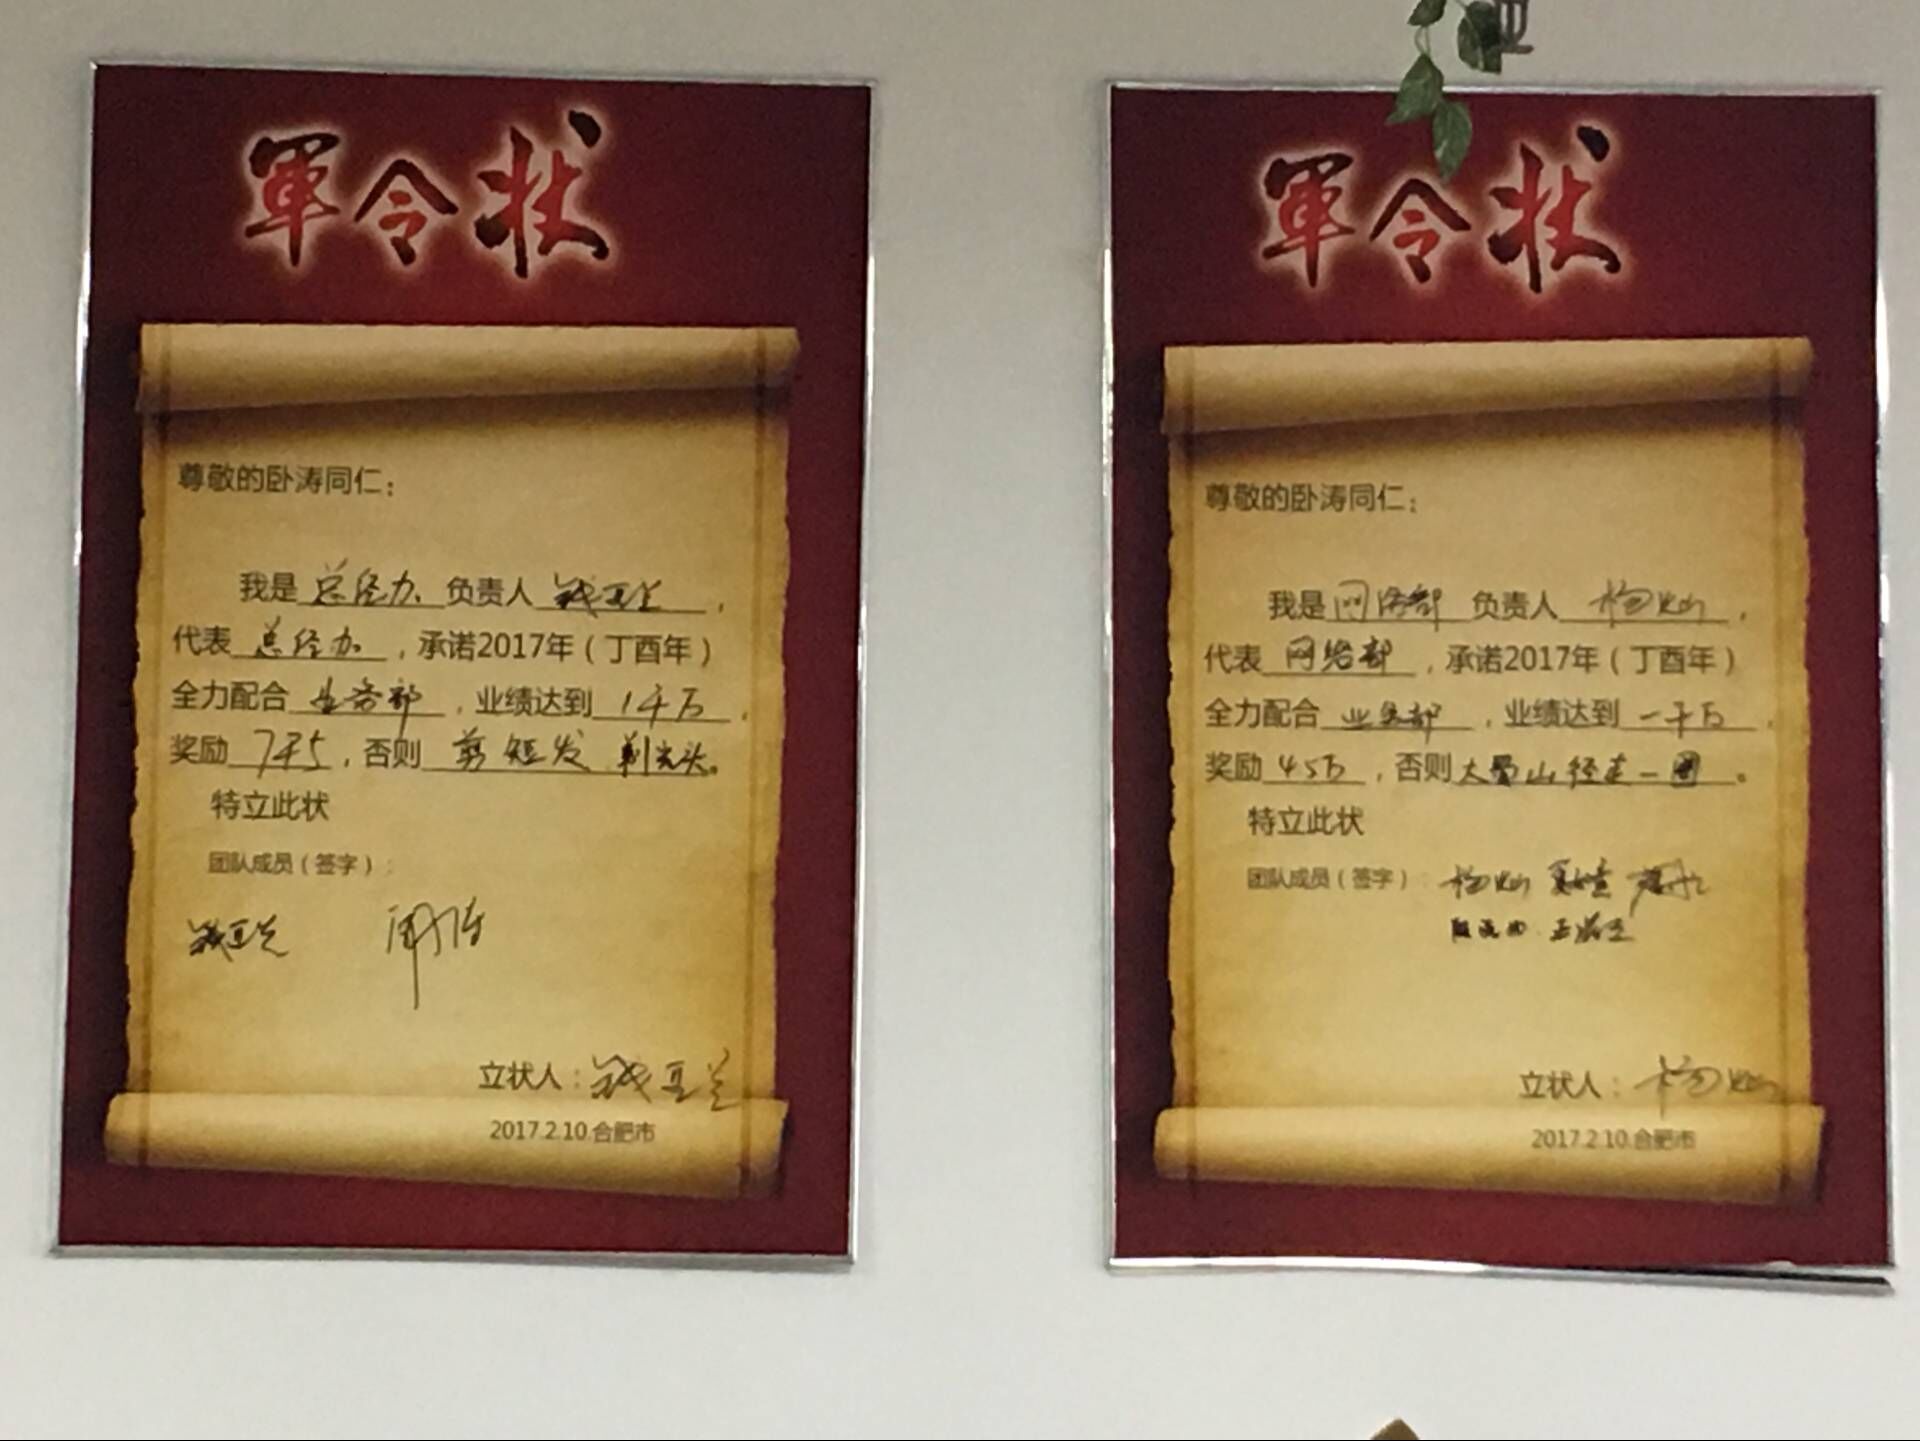 軍令状
尊敬的卧涛同仁：
我是 总经办 负责人 钱亚兰，
代表 总经办，承诺2017年（丁酉年）
全力配合 业务部，业绩达到 1千万，
奖励 7千5，否则 剪短发 剃光头。
特立此状
团队成员（签字）：
钱亚兰
立状人：钱亚兰
2017.2.10.合肥市
軍令状
尊敬的卧涛同仁：
我是 网络部 负责人 杨灿，
代表 网络部，承诺2017年（丁酉年）
全力配合 业务部，业绩达到 一千万，
奖励 4.5万，否则 大蜀山径走一圈。
特立此状
团队成员（签字）：杨灿
立状人：杨灿
2017.2.10.合肥市